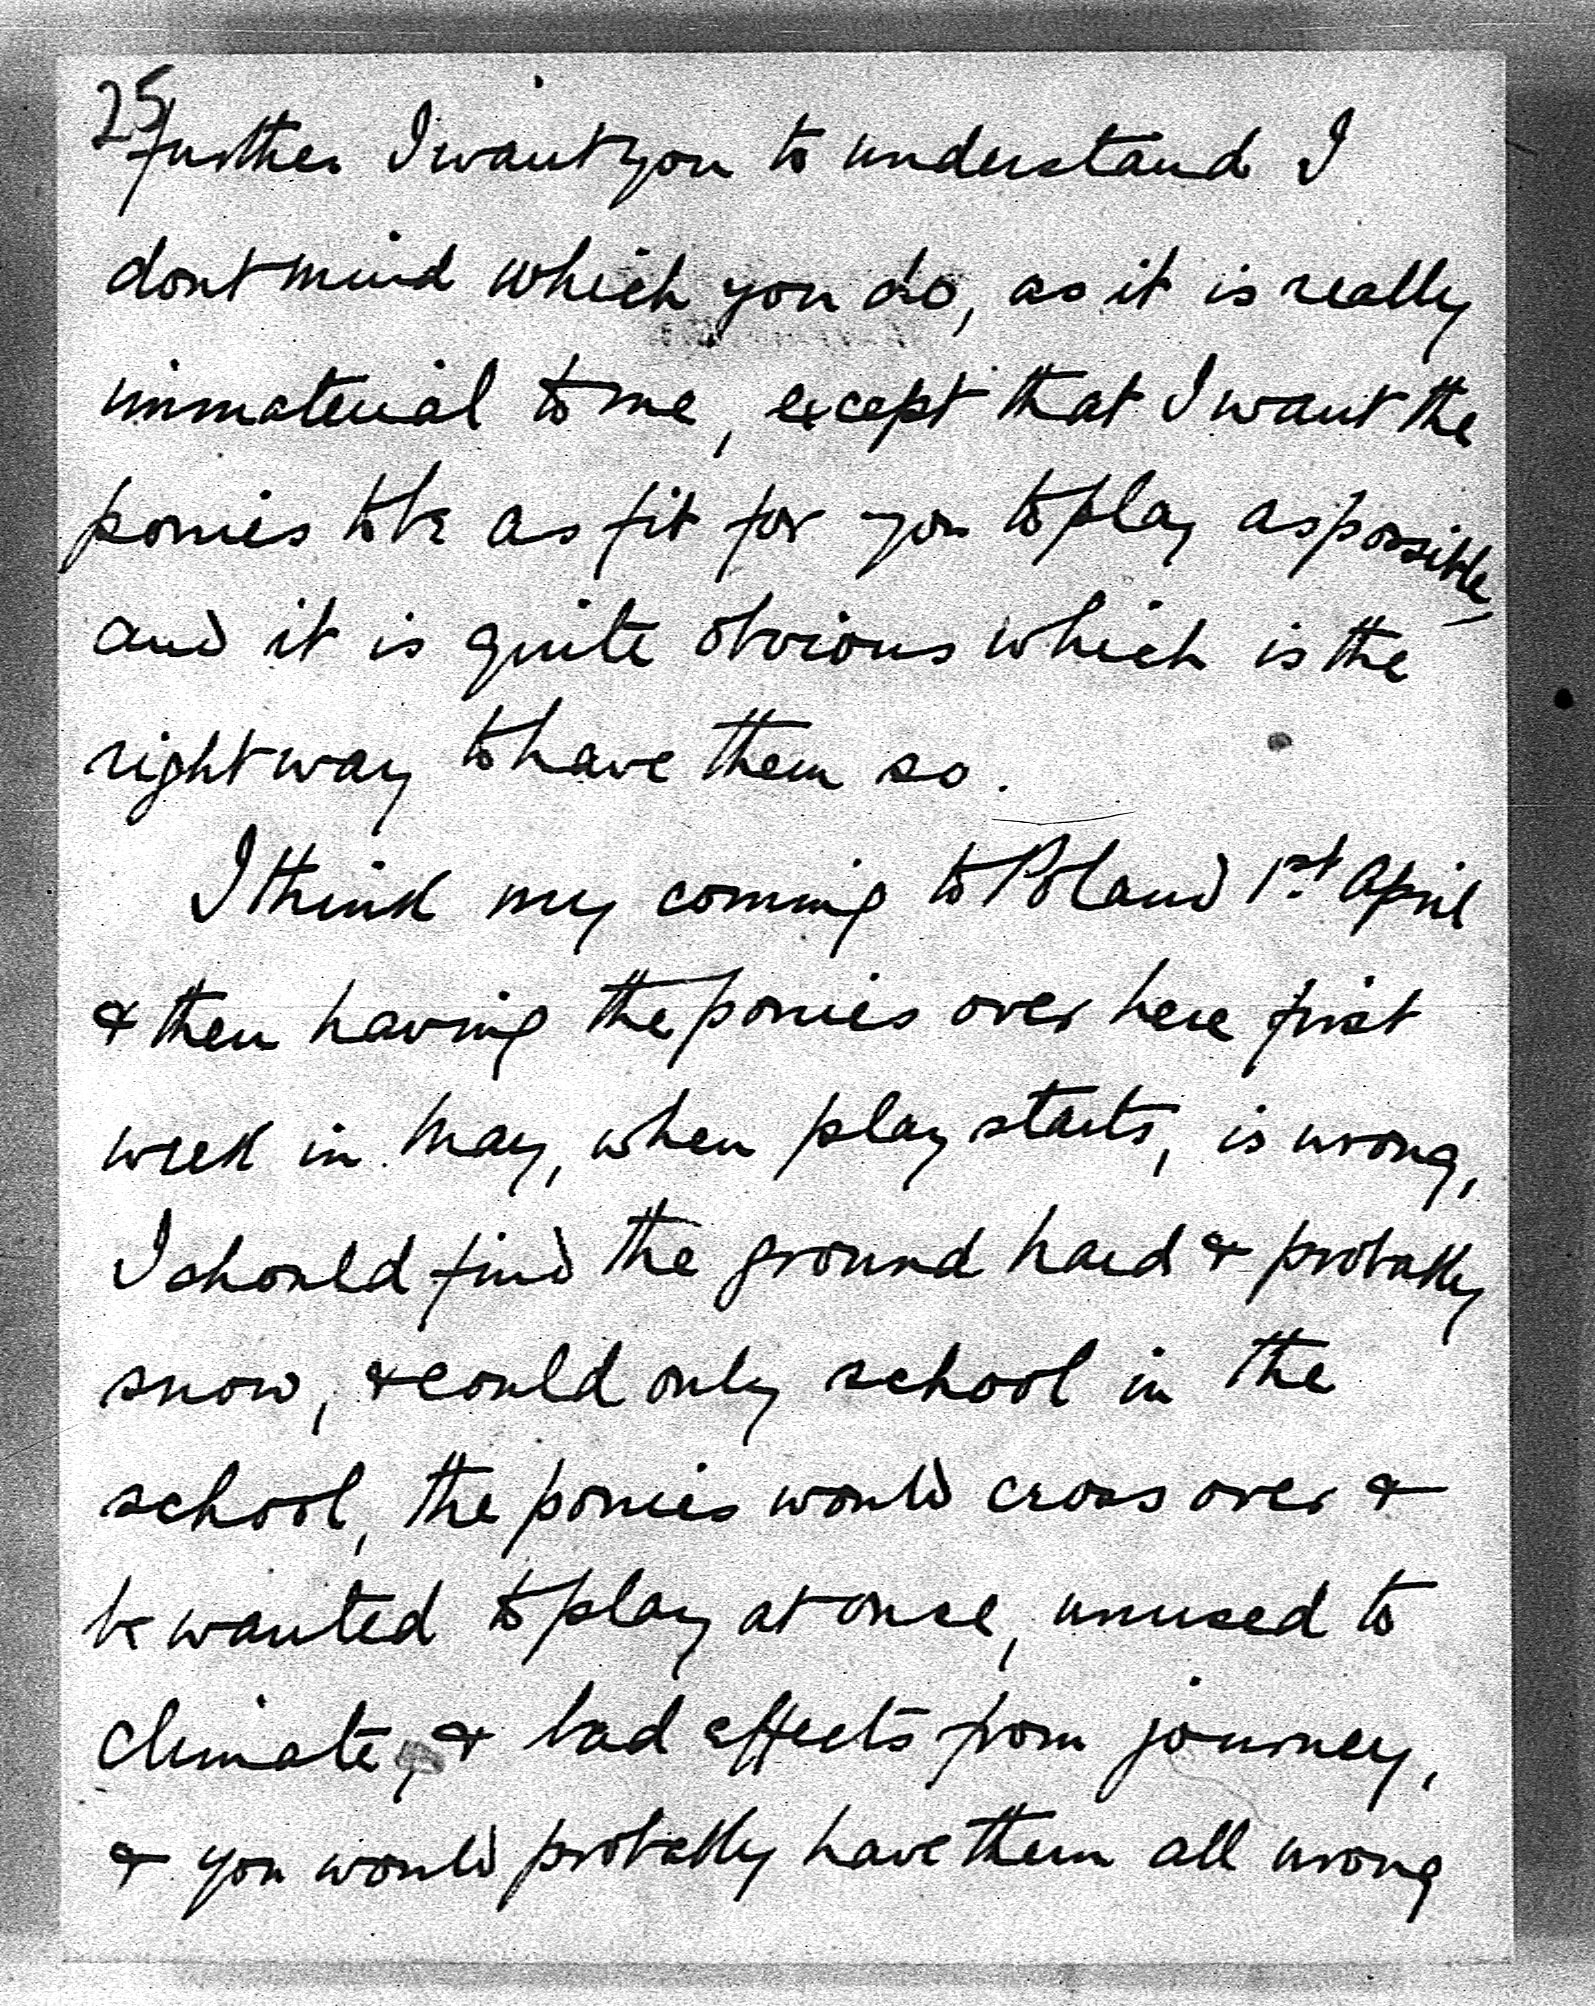 25
further I want you to understand I
dont mind which you do, as it is really
immaterial to me, except that I want the
ponies to be as fit for you to play as possible,
and it is quite obvious which is the
right way to have them so.
I think my coming to Poland 1st April
& then having the ponies over here first
week in May, when play starts, is wrong,
I should find the ground hard & probably
snow, & could only school in the
school, the ponies would cross over &
be wanted to play at once, unused to
climate, & bad effects from journey,
& you would probably have them all wrong